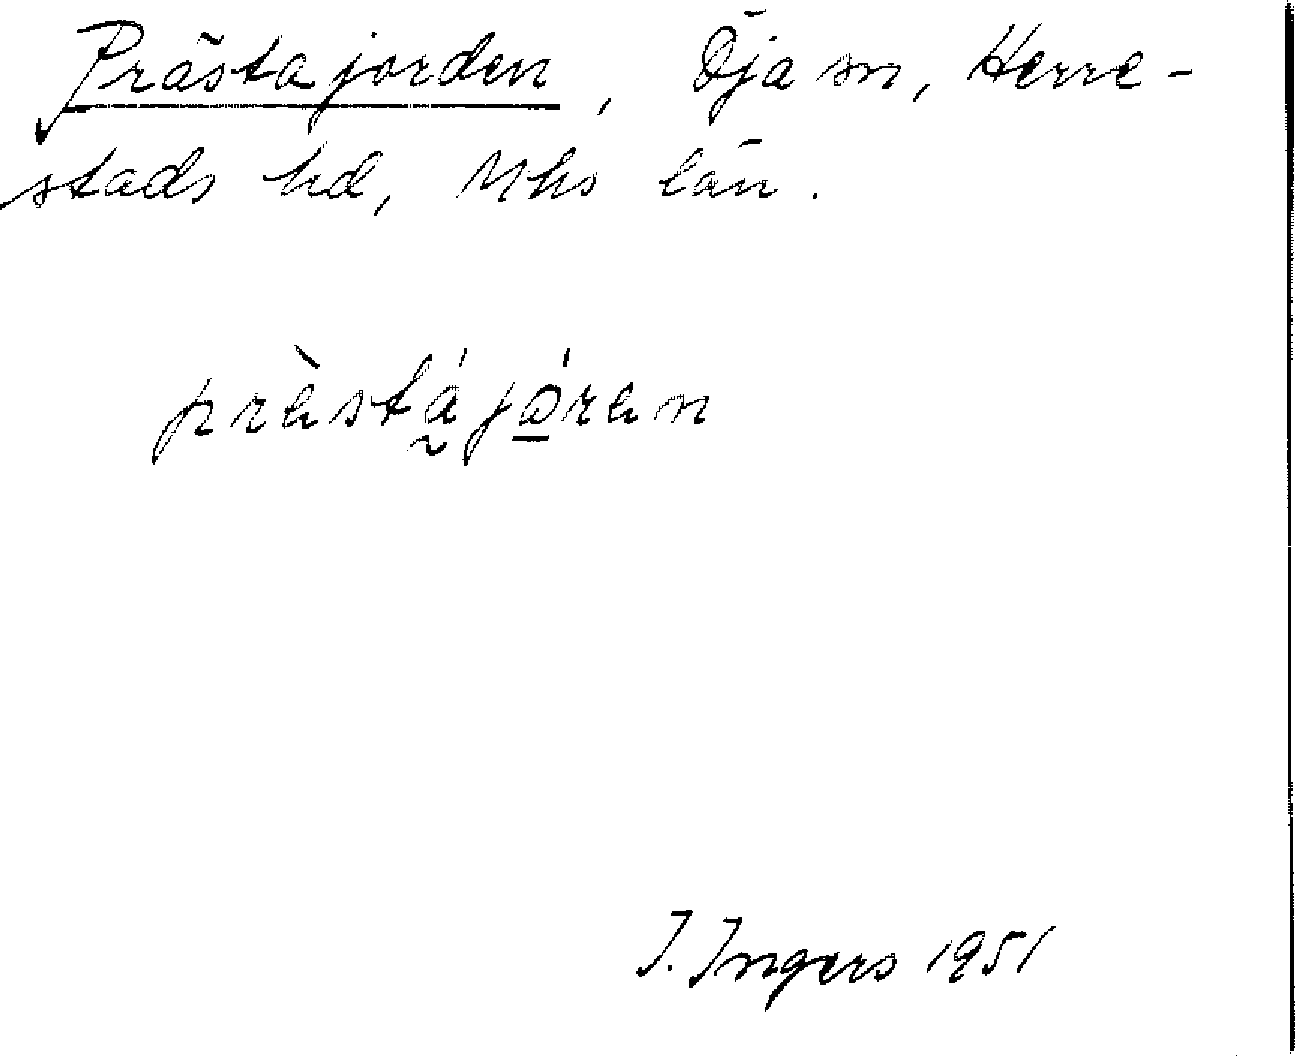 Prästajorden, Öja sn, Herre-
stads hd, Mhs län.
prästájóren
I. Ingers 1951